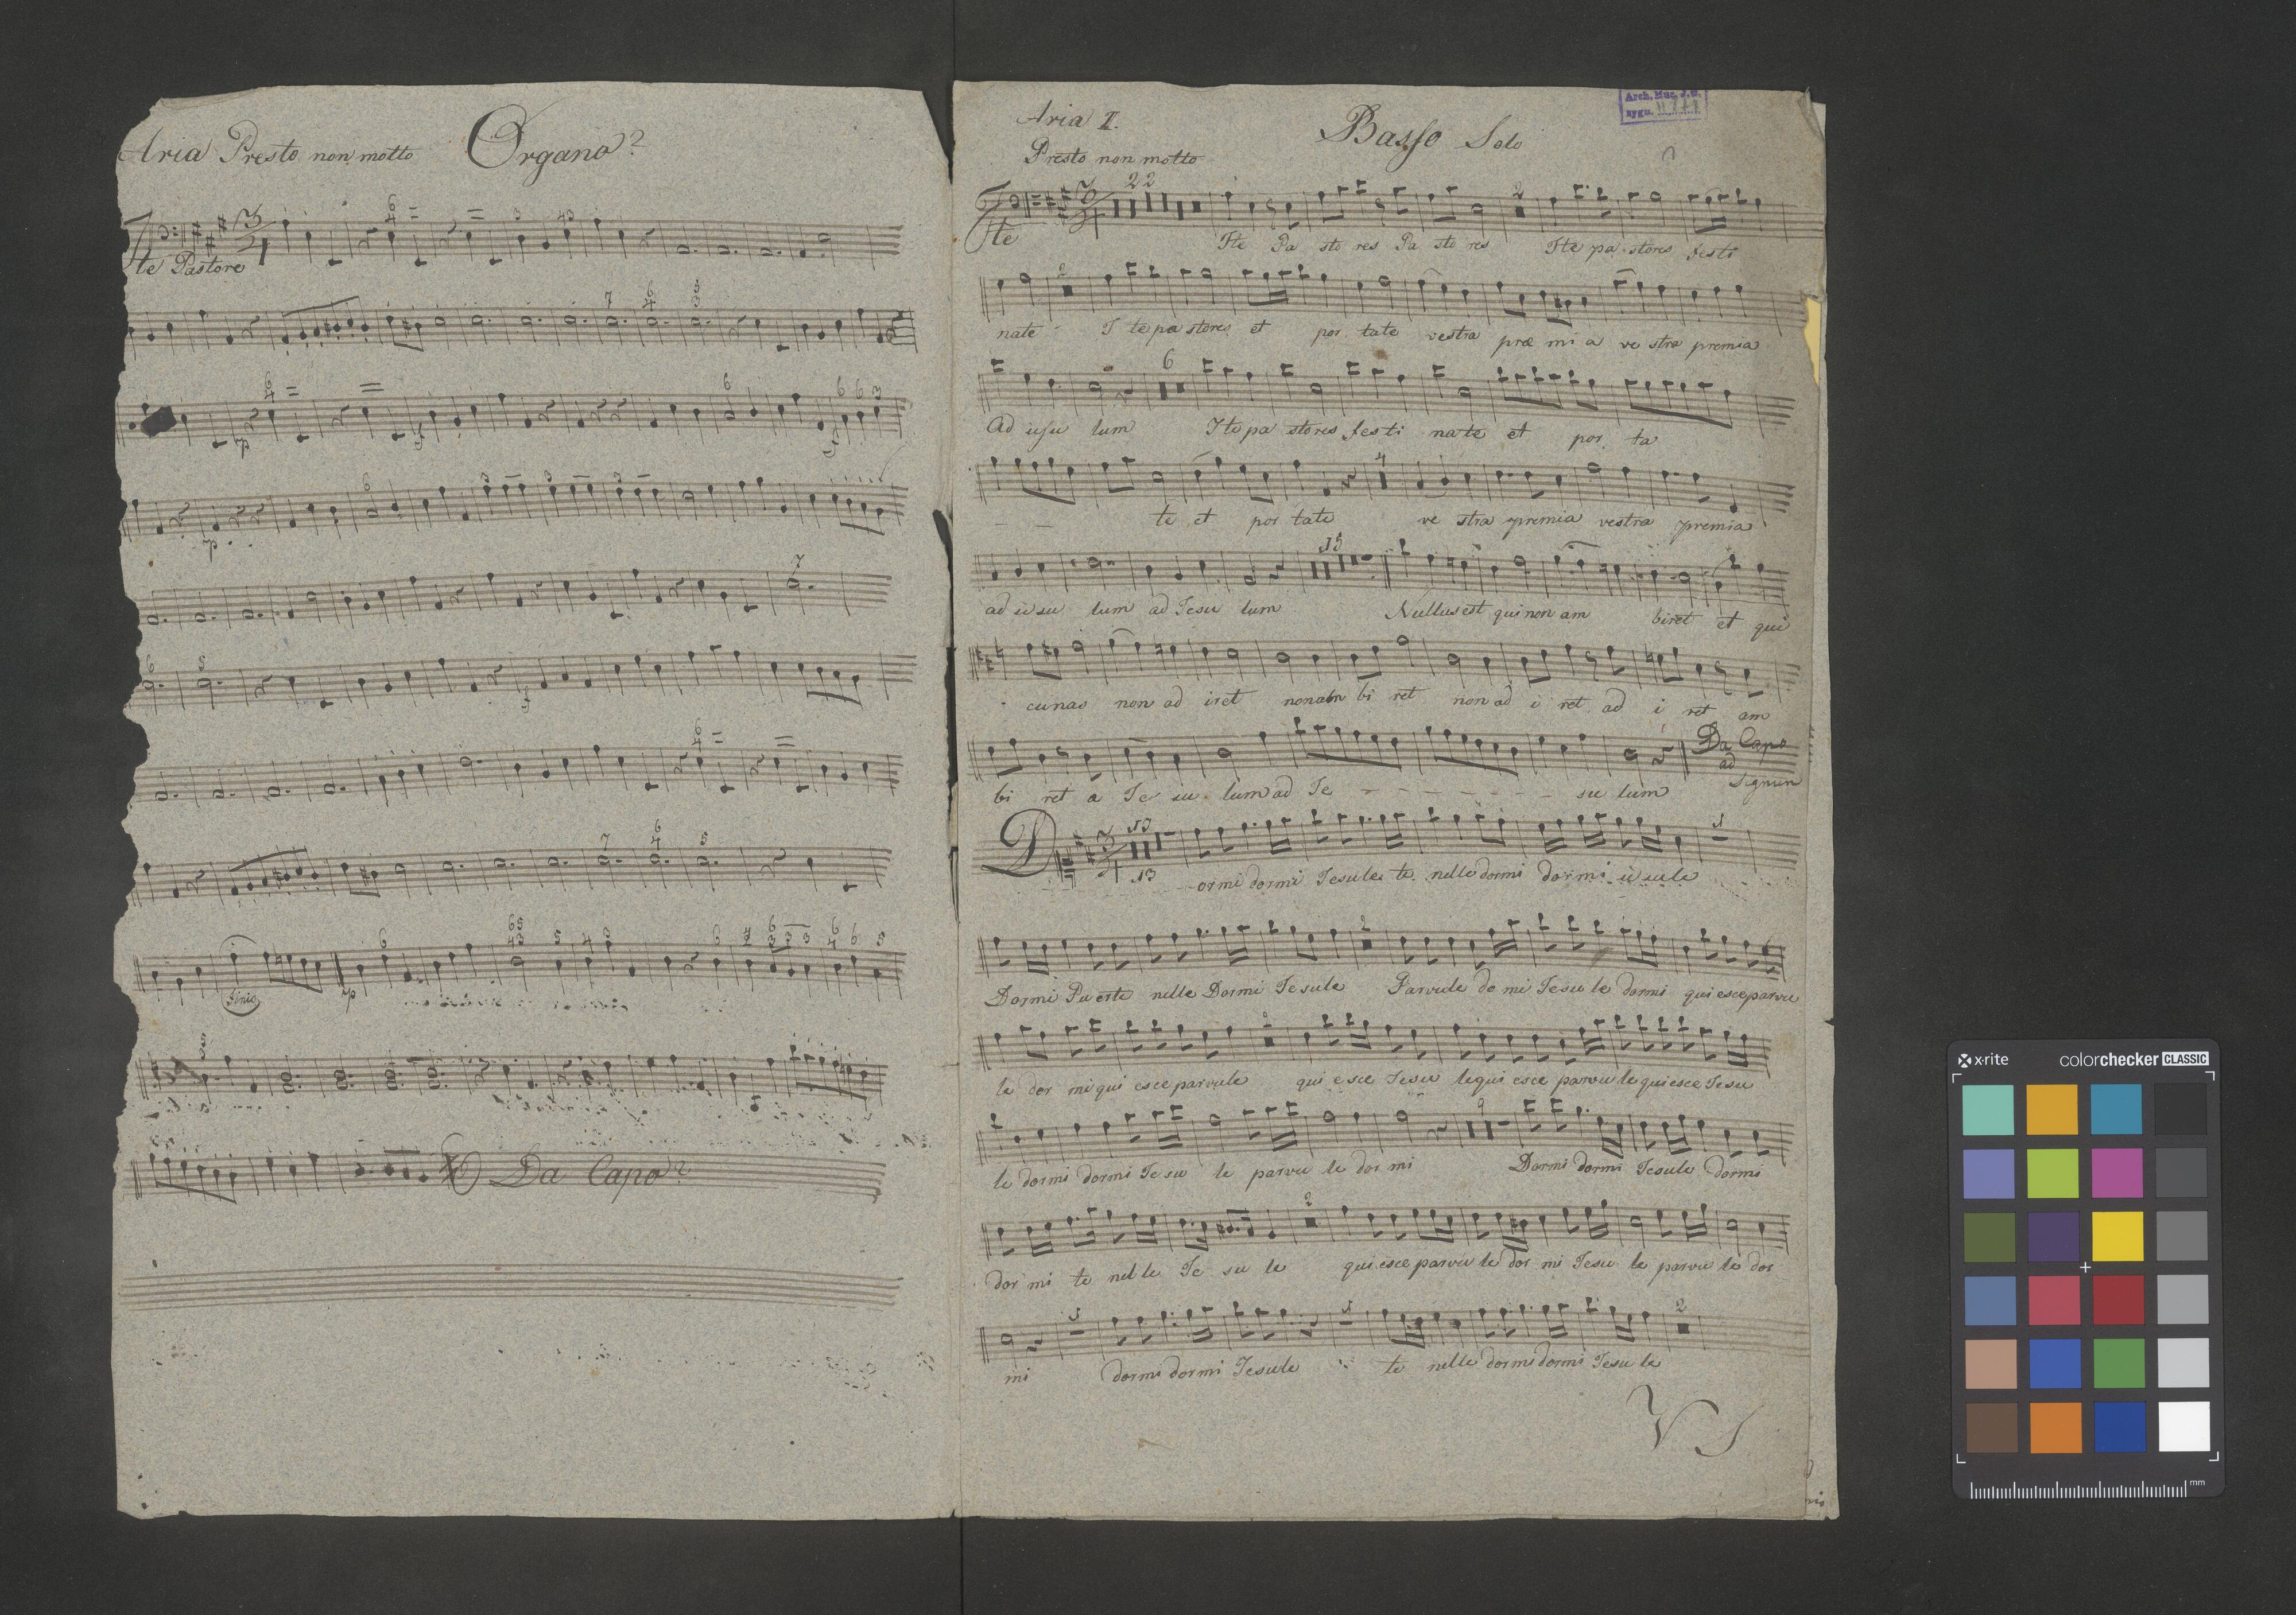 Aria Presto non molto Organo
Ite Pastore
Finis
Da Capo
Arch. Mus. J. G.
sygn.
Aria II. Basso Solo
Presto non molto
22
Ite Ite Pa sto res Pa sto res Ite pa stores festi
nate I te pa stores et por tate vestra præ mi a ve stra premia
Ad iesu lum Ite pa stores festi na te et por ta
te et por tate ve stra premia vestra premia
ad iesu lum ad Jesu lum Nullus est qui non am biret et qui
cunas non ad iret non am bi ret non ad i ret ad i ret am
Da Capo
ad
Signum
bi ret a Je su lum ad Je - - - - - - - su lum
Dormi dormi Jesule te nelle dormi dor mi iesule
Dormi Pu er te nelle Dormi Jesule Parvule do mi Jesu le dormi qui esce parvu
le dor mi qui esce parvule qui e sce Jesu le qui esce parvu le qui esce Jesu
le dormi dormi Jesu le parvu le dor mi Dormi dormi Jesule dormi
dor mi te nel le Je su le qui esce parvu le dor mi Jesu le parvu le dor
mi dormi dor mi Jesule te nelle dormi dormi Jesu le
V S
x-rite colorchecker CLASSIC
mm